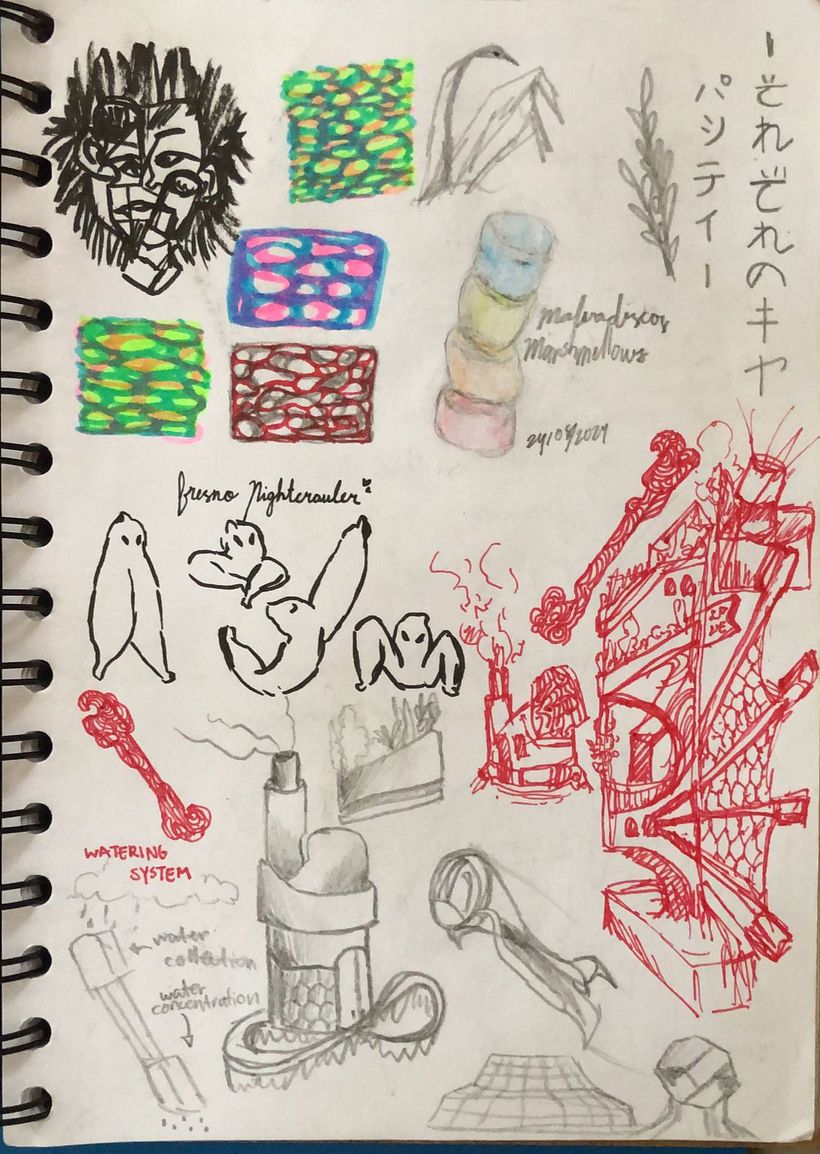 ーそれぞれのキャ
パシティー
Malvadiscos
Marshmellows
fresno Nightcrauler
WATERING
SYSTEM
water
collection
water
concentration